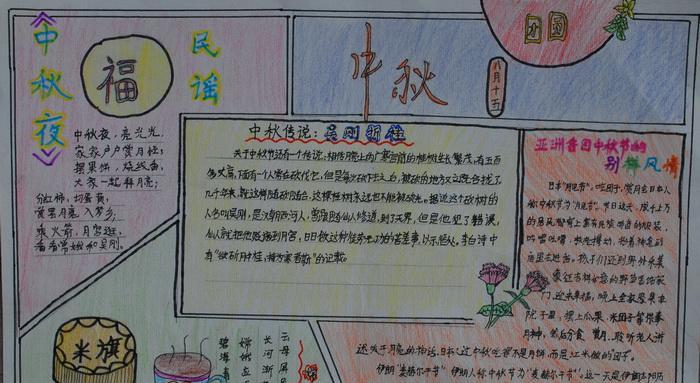 《中秋夜》
民谣
福
中秋
八月十五
团圆
中秋夜，亮光光，
家家户户赏月忙；
摆果饼，烧线香，
大家一起拜月亮；
分红柿，切蛋黄，
赏罢月亮入梦乡；
乘火箭，月宫逛，
看看嫦娥和吴刚。
中秋传说：吴刚折桂
关于中秋节还有一个传说：相传月亮上的广寒宫前的桂树生长繁茂，有五百
多丈高，下面有一个人常在砍伐它，但是每次砍下去之后，被砍的地方又立即合拢了。
几千年来，就这样随砍随合，这棵桂树永远也不能被砍光。据说这个砍树的
人名叫吴刚，是汉朝西河人，曾跟随仙人修道，到了天界，但是他犯了错误，
仙人就把他贬谪到月宫，日日做这种徒劳无功的苦差事，以示惩处。李白诗中
有“欲斫月中桂，持为寒者薪”的记载。
亚洲各国中秋节的
别样风情
日本“月见节”：吃团子，赏月在日本人
门，迎来幸福，晚上全家座具在
还关于月亮的神话。日本人过中秋吃得不是月饼而是江米做的团子。
伊朗“麦赫尔干节” 伊朗人称中秋节为“麦赫尔干节”。这一天是伊朗太阳历
米旗
云母屏
长河渐
嫦娥应
碧海青